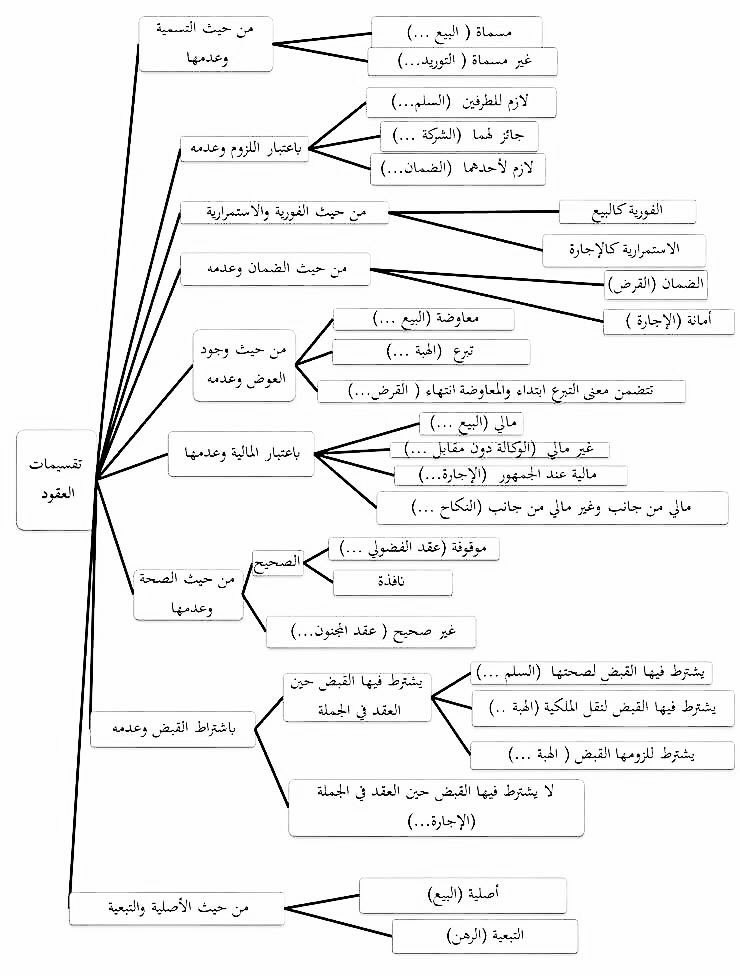 تقسيمات
العقود
من حيث التسمية
وعدمها
مسماة ( البيع ...)
غير مسماة ( التوريد...)
باعتبار اللزوم وعدمه
لازم للطرفين (السلم...)
جائز لهما (الشركة ...)
لازم لأحدهما (الضمان...)
من حيث الفورية والاستمرارية
الفورية كالبيع
الاستمرارية كالإجارة
من حيث الضمان وعدمه
الضمان (القرض)
أمانة (الإجارة )
من حيث وجود
العوض وعدمه
معاوضة (البيع ...)
تبرع (الهبة ...)
تتضمن معنى التبرع ابتداء والمعاوضة انتهاء ( القرض...)
باعتبار المالية وعدمها
مالي (البيع ...)
غير مالي (الوكالة دون مقابل ...)
مالية عند الجمهور (الإجارة...)
مالي من جانب وغير مالي من جانب (النكاح ...)
من حيث الصحة
وعدمها
الصحيح
موقوفة (عقد الفضولي ...)
نافذة
غير صحيح ( عقد المجنون...)
باشتراط القبض وعدمه
يشترط فيها القبض حين
العقد في الجملة
يشترط فيها القبض لصحتها (السلم ...)
يشترط فيها القبض لنقل الملكية (الهبة ..)
يشترط للزومها القبض ( الهبة ...)
لا يشترط فيها القبض حين العقد في الجملة
(الإجارة...)
من حيث الأصلية والتبعية
أصلية (البيع)
التبعية (الرهن)